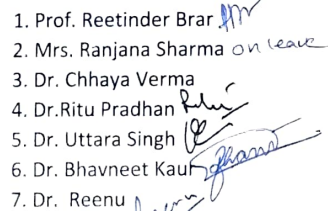 1. Prof. Reetinder Brar
2. Mrs. Ranjana Sharma on leave
3. Dr. Chhaya Verma
4. Dr.Ritu Pradhan
5. Dr. Uttara Singh
6. Dr. Bhavneet Kaur
7. Dr. Reenu